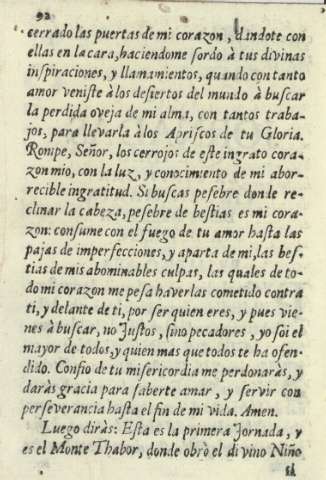 92
cerrado las puertas de mi corazon, dandote con
ellas en la cara, haciendome sordo à tus divinas
inspiraciones, y llamamientos, quando con tanto
amor veniste à los desiertos del mundo à buscar
la perdida oveja de mi alma, con tantos traba-
jos, para llevarla à los Apriscos de tu Gloria.
Rompe, Señor, los cerrojos de este ingrato cora-
zon mio, con la luz, y conocimiento de mi abor-
recible ingratitud. Si buscas pesebre donde re-
clinar la cabeza, pesebre de bestias es mi cora-
zon: consume con el fuego de tu amor hasta las
pajas de imperfecciones, y aparta de mi, las bes-
tias de mis abominables culpas, las quales de to-
do mi corazon me pesa haverlas cometido contra
ti, y delante de ti, por ser quien eres, y pues vie-
nes à buscar, no Justos, sino pecadores, yo soi el
mayor de todos, y quien mas que todos te ha ofen-
dido. Confio de tu misericordia me perdonaràs, y
daràs gracia para saberte amar, y servir con
perseverancia hasta el fin de mi vida. Amen.
Luego diràs: Esta es la primera Jornada, y
es el Monte Thabor, donde obrò el divino Niño
si